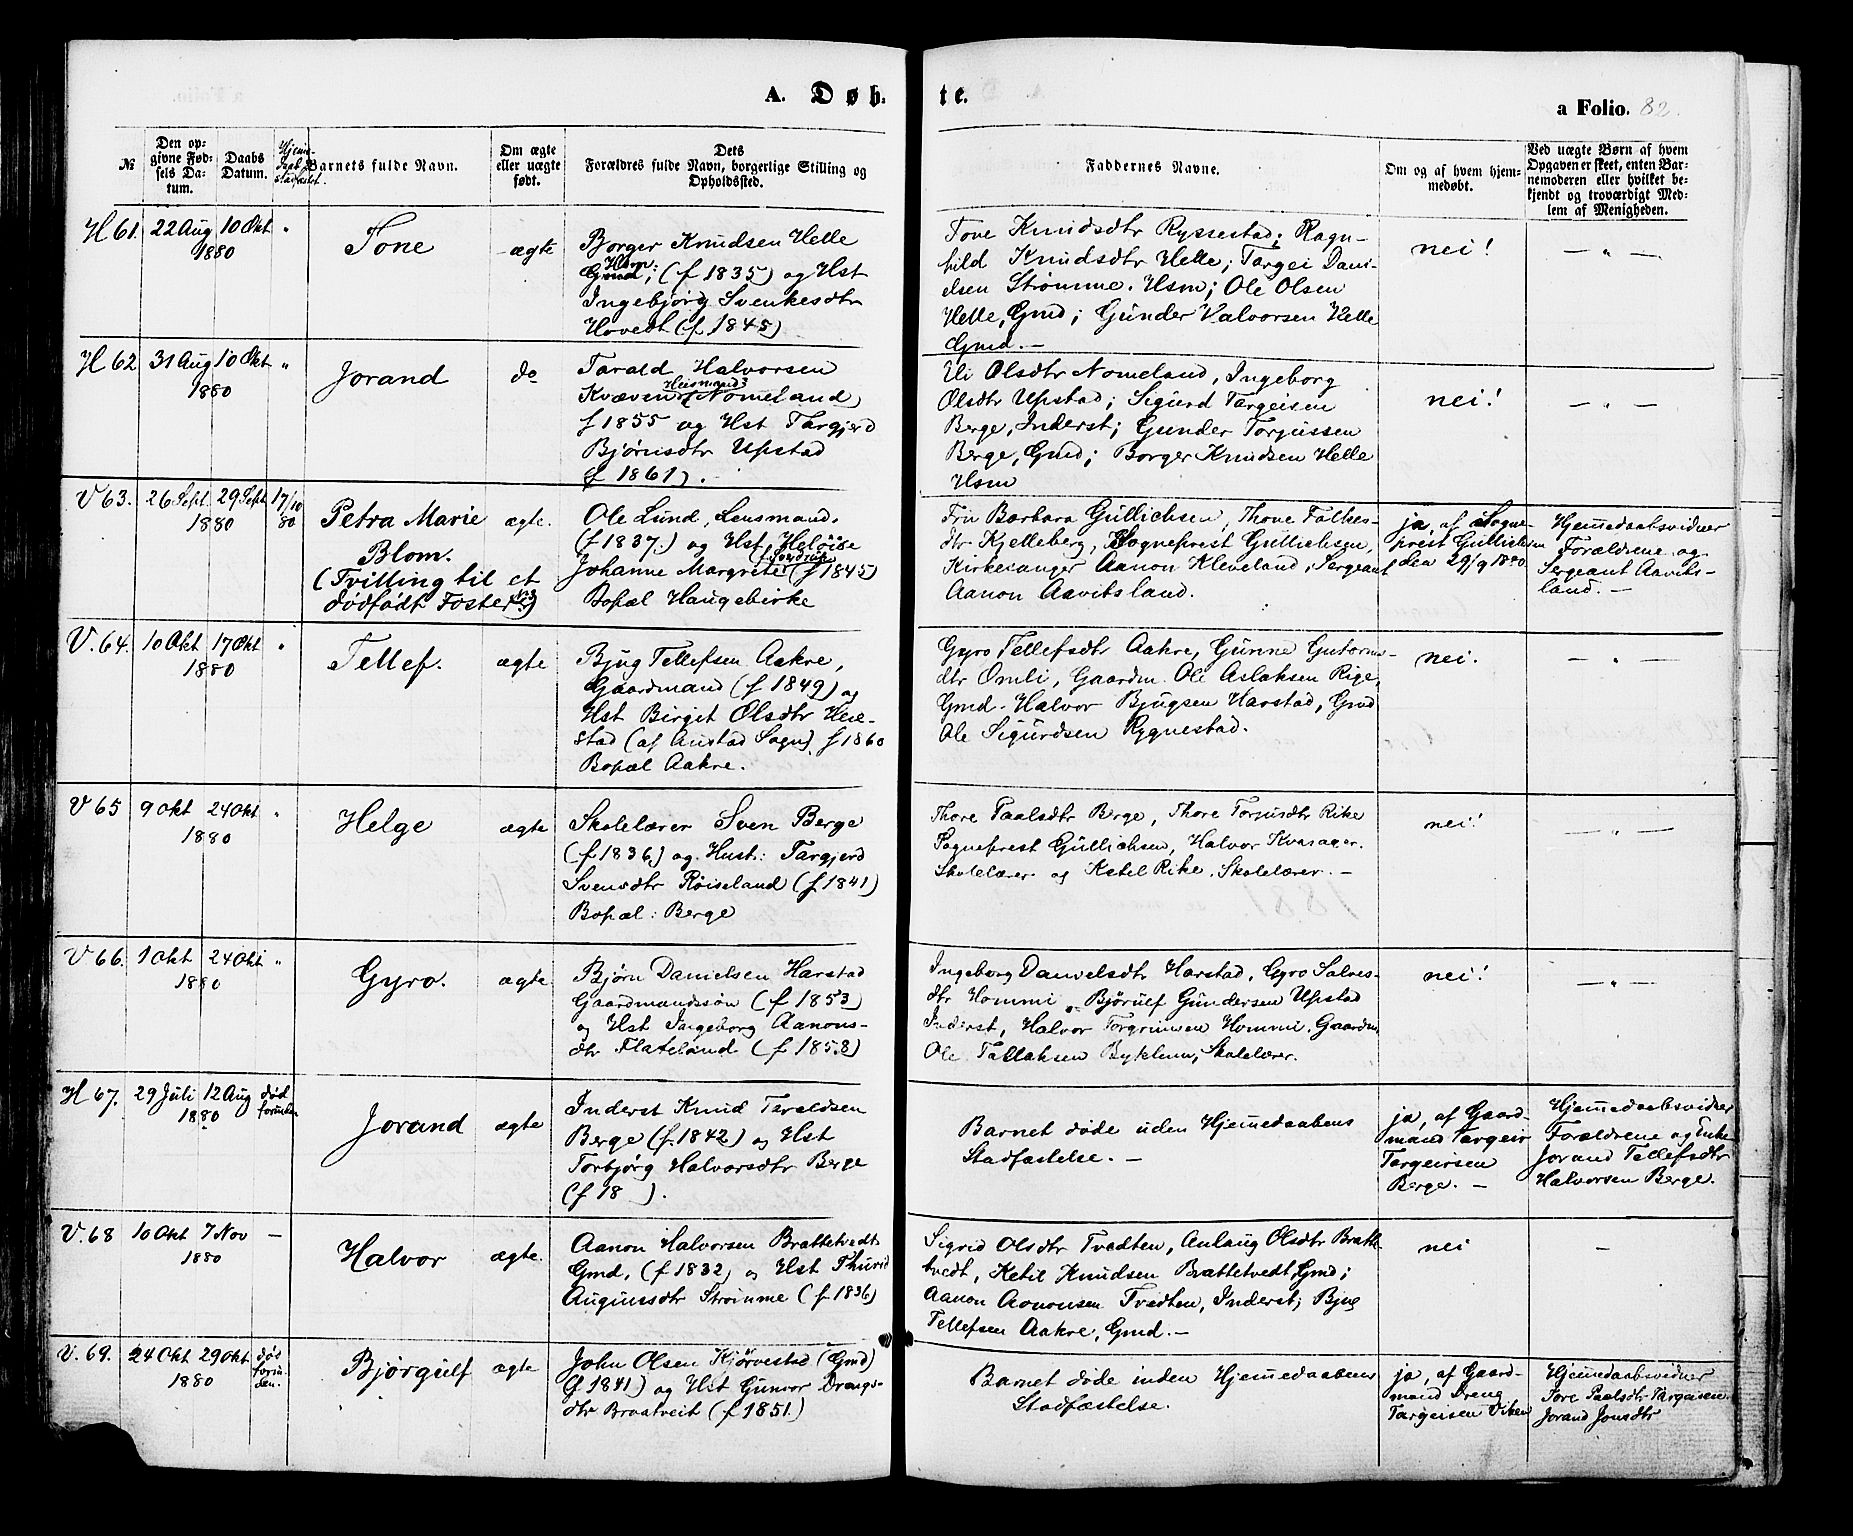 A. Døb-
te.
a Folio. 82
№
Den op-
givne Fød-
sels Da-
tum.
Daabs
Datum.
Hjemmedaab
stadfæstet.
Barnets fulde Navn.
Om ægte
eller uægte
født.
Dets
Forældres fulde Navn, borgerlige Stilling og
Opholdssted.
Faddernes Navne.
Om og af hvem hjem-
medøbt.
Ved uægte Børn af hvem
Opgaven er skeet, enten Bar-
nemoderen eller hvilket be-
kjendt og troværdigt Med-
lem af Menigheden.
H 61. 22 Aug 10 Okt "
1880
Tone
ægte
Borger Knudsen Helle
Hsm: (f 1835) og Hst
Ingebjørg Svenkesdtr
Hovedt (f 1845)
Tone Knudsdtr Ryssestad; Ragn-
hild Knudsdtr Helle; Targei Dani-
elsen Strømme, Hsm; Ole Olsen
Helle, Gmd; Gunder Halvorsen Helle
Gmd. —
nei!
— " —
H 62 31 Aug 10 Okt "
1880
Jorand
do
Tarald Halvorsen
Kvæven, (Nomeland)
f 1855 og Hst Targjerd
Bjørnsdtr Upstad
f 1861).
Uli Olsdtr Nomeland, Ingeborg
Olsdtr Upstad; Sigurd Targeisen
Berge, Inderst; Gunder Torjussen
Berge, Gmd; Borger Knudsen Helle
Hsm
nei!
— " —
V 63. 26 Sept 29 Sept 17/10
1880 80
Petra Marie
Blom.
(Tvilling til et
dødfødt Foster)
ægte.
Ole Lund, Lensmand.
(f 1837.) og Hst, Heloise
Johanne Margrete (f 1845)
Bopæl Haugebirke
Fru Barbara Gullichsen, Thone Falkes-
dtr Kjelleberg, Sogneprest Gullichsen,
Kirkesanger Aanon Kleveland, Sergeant
Aanon Aavitsland.
ja, af Sogne-
prest Gullichsen
den 29/9 1880.
Hjemmedaabsvidner
Forældrene og
Sergeant Aavits-
land. —
V. 64. 10 Okt 17 Okt "
1880
Tellef.
ægte
Bjug Tellefsen Aakre,
Gaardmand (f 1849) og
Hst Birgit Olsdtr Heie-
stad (af Austad Sogn) f 1860
Bopæl Aakre.
Gyro Tellefsdtr Aakre, Gunne Gutorms-
dtr Omli, Gaardm. Oli Aslaksen Rige,
Gmd. Halvor Bjugsen Harstad, Gmd
Ole Sigurdsen Rygnestad.
nei.
— " —
V 65 9 Okt 24 Okt "
1880
Helge
ægte
Skolelærer Sven Berge
(f 1836) og Hust: Targjerd
Svensdtr Røiseland (f 1841)
Bopæl: Berge
Thore Paalsdtr Berge, Thore Torjusdtr Rike
Sogneprest Gullichsen, Halvor Kvasager.
Skolelærer og Ketel Rike, Skolelærer. —
nei!
— " —
V 66. 1 Okt 24 Okt "
1880
Gyro.
ægte
Bjørn Danielsen Harstad
Gaardmandssøn (f 1853)
og Hst Ingeborg Aanons-
dtr Flateland (f 1858)
Ingeborg Danielsdtr Harstad, Gyro Salves-
dtr Hommi, Bjørulf Gundersen Upstad
Inderst, Halvor Torgrimsen Hommi, Gaardm.
Ole Tallaksen Byklum, Skolelærer.
nei!
— " —
H 67. 29 Juli 12 Aug død
1880 forinden
Jorand
ægte
Inderst Knud Taraldsen
Berge (f. 1842) og Hst
Torbjørg Halvorsdtr Berge
(f 18 ).
Barnet døde uden Hjemmedaabens
Stadfæstelse. —
ja, af Gaard-
mand Targeir
Targeirsen
Berge. —
Hjemmedaabsvidner
Forældrene og Enke
Jorand Tellefsdtr
Halvorsen Berge.
V. 68 10 Okt 7 Nov —
1880
Halvor
ægte.
Aanon Halvorsen Brattetvedt
Gmd, (f 1832) og Hst Thurid
Augunsdtr Strømme (f 1836)
Sigrid Olsdtr Tvedten, Anlaug Olsdtr Bratte-
tvedt, Ketil Knudsen Brattetvedt, Gmd;
Aanon Aanonsen Tvedten, Inderst; Bjug
Tellefsen Aakre, Gmd. —
nei
—
V. 69. 24 Okt 29 Okt død
1880 forin-
den.
Bjørgulf
ægte
John Olsen Kjørvestad (Gmd)
(f 1841) og Hst Gunvor Drengs-
dtr Braatveit (f 1851.)
Barnet døde inden Hjemmedaabens
Stadfæstelse.
ja, af Gaard-
mand Dreng
Targeisen Viken
Hjemmedaabsvidner
Tore Paalsdtr Targeisen
Jorand Jonsdtr